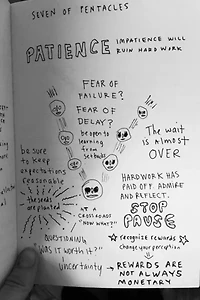 SEVEN OF PENTACLES
PATIENCE
IMPATIENCE WILL
RUIN HARD WORK
FEAR OF
FAILURE?
FEAR OF
DELAY?
be open to
learning
from
setbacks
The wait
is almost
OVER
be sure
to keep
expectations
reasonable
the seeds
are planted
HARDWORK HAS
PAID OFF ADMIRE
AND REFLECT.
STOP
PAUSE
AT A
CROSSROADS
"NOW WHAT?"
recognize rewards
change your perception
QUESTIONING
"WAS IT WORTH IT?"
uncertainty
REWARDS ARE
NOT ALWAYS
MONETARY